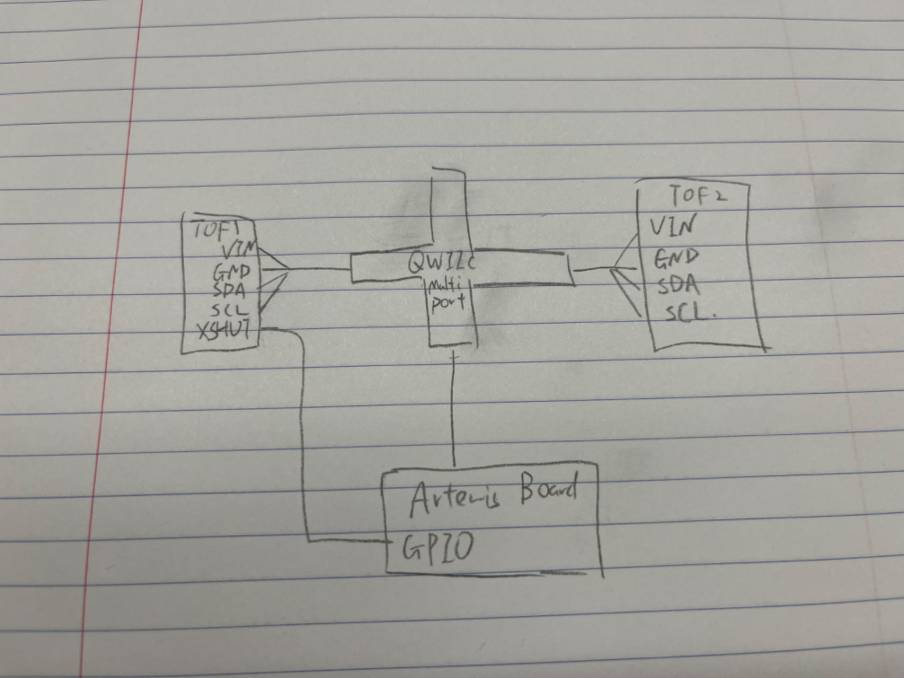 TOF1
VIN
GND
SDA
SCL
XSHUT
QWIIC
multi
port
TOF2
VIN
GND
SDA
SCL.
Artemis Board
GPIO